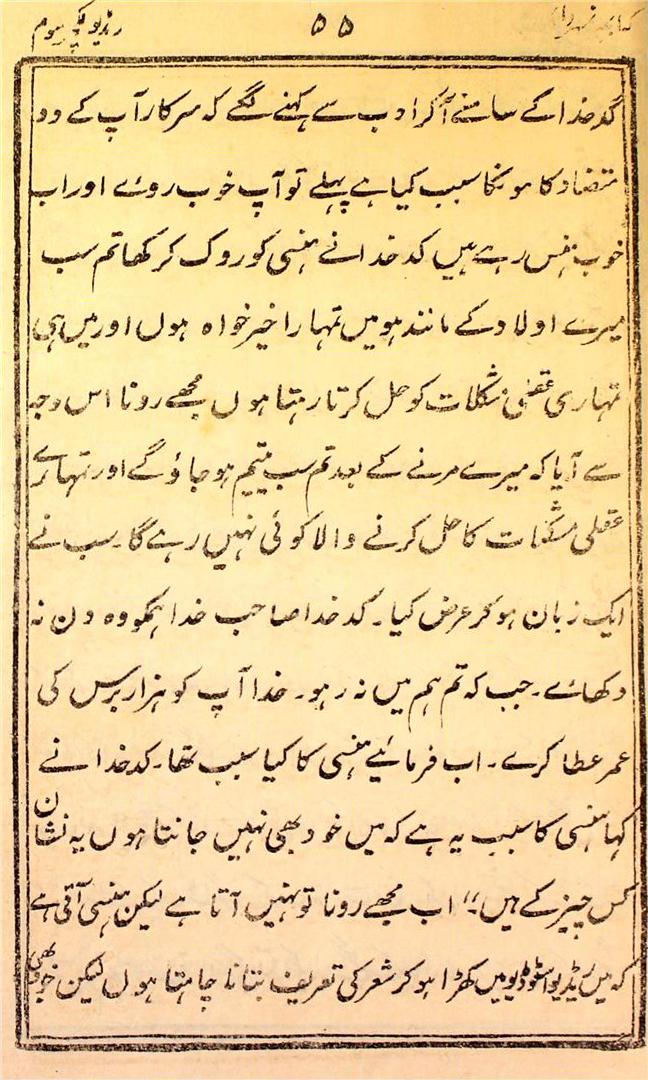 ریڈیو لکچر سوم
۵۵
کدخدا کے سامنے آکر ادب سے کہنے لگے کہ سرکار آپ کے دو
متضاد کاموںکا سبب کیا ہے پہلے تو آپ خوب روئے اور اب
خوب ہنس رہے ہیں کدخدا نے ہنسی کو روک کر کہا تم سب
میرے اولاد کے مانند ہو میں تمہارا خیر خواہ ہوں اور میں ہی
تمہاری عقلی مشکلات کو حل کرتا رہتا ہوں مجھے رونا اس وجہ
سے آیا کہ میرے مرنے کے بعد تم سب یتیم ہو جاؤ گے اور تمہارے
عقلی مشکلات کا حل کرنے والا کوئی نہیں رہے گا۔ سب نے
ایک زبان ہو کر عرض کیا۔ کدخدا صاحب خدا ہمکو وہ دن نہ
دکھائے۔ جب کہ تم ہم میں نہ رہو۔ خدا آپ کو ہزار برس کی
عمر عطا کرے۔ اب فرمائیے ہنسی کا کیا سبب تھا۔ کدخدا نے
کہا ہنسی کا سبب یہ ہے کہ میں خود بھی نہیں جانتا ہوں یہ نشان
کس چیز کے ہیں؛“ اب مجھے رونا تو نہیں آتا ہے لیکن ہنسی آتی ہے
کہ میں ریڈیو اسٹوڈیو میں کھڑا ہو کر شعر کی تعریف بتانا چاہتا ہوں لیکن خود بھی